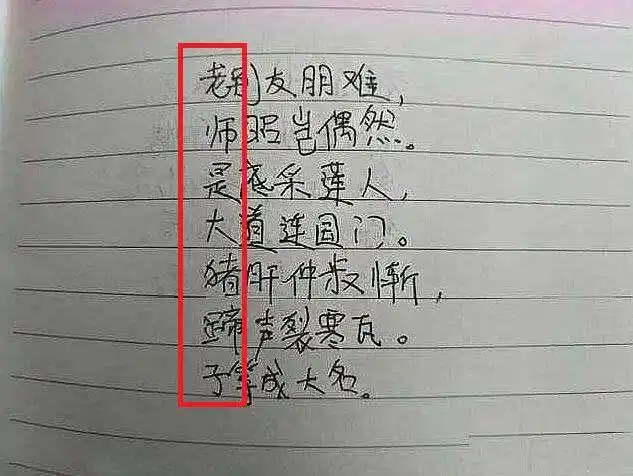 老别友朋难，
师昭岂偶然。
是底采莲人，
大道连国门。
猪肝仲叔惭，
蹄声裂寒瓦。
子等成大名。